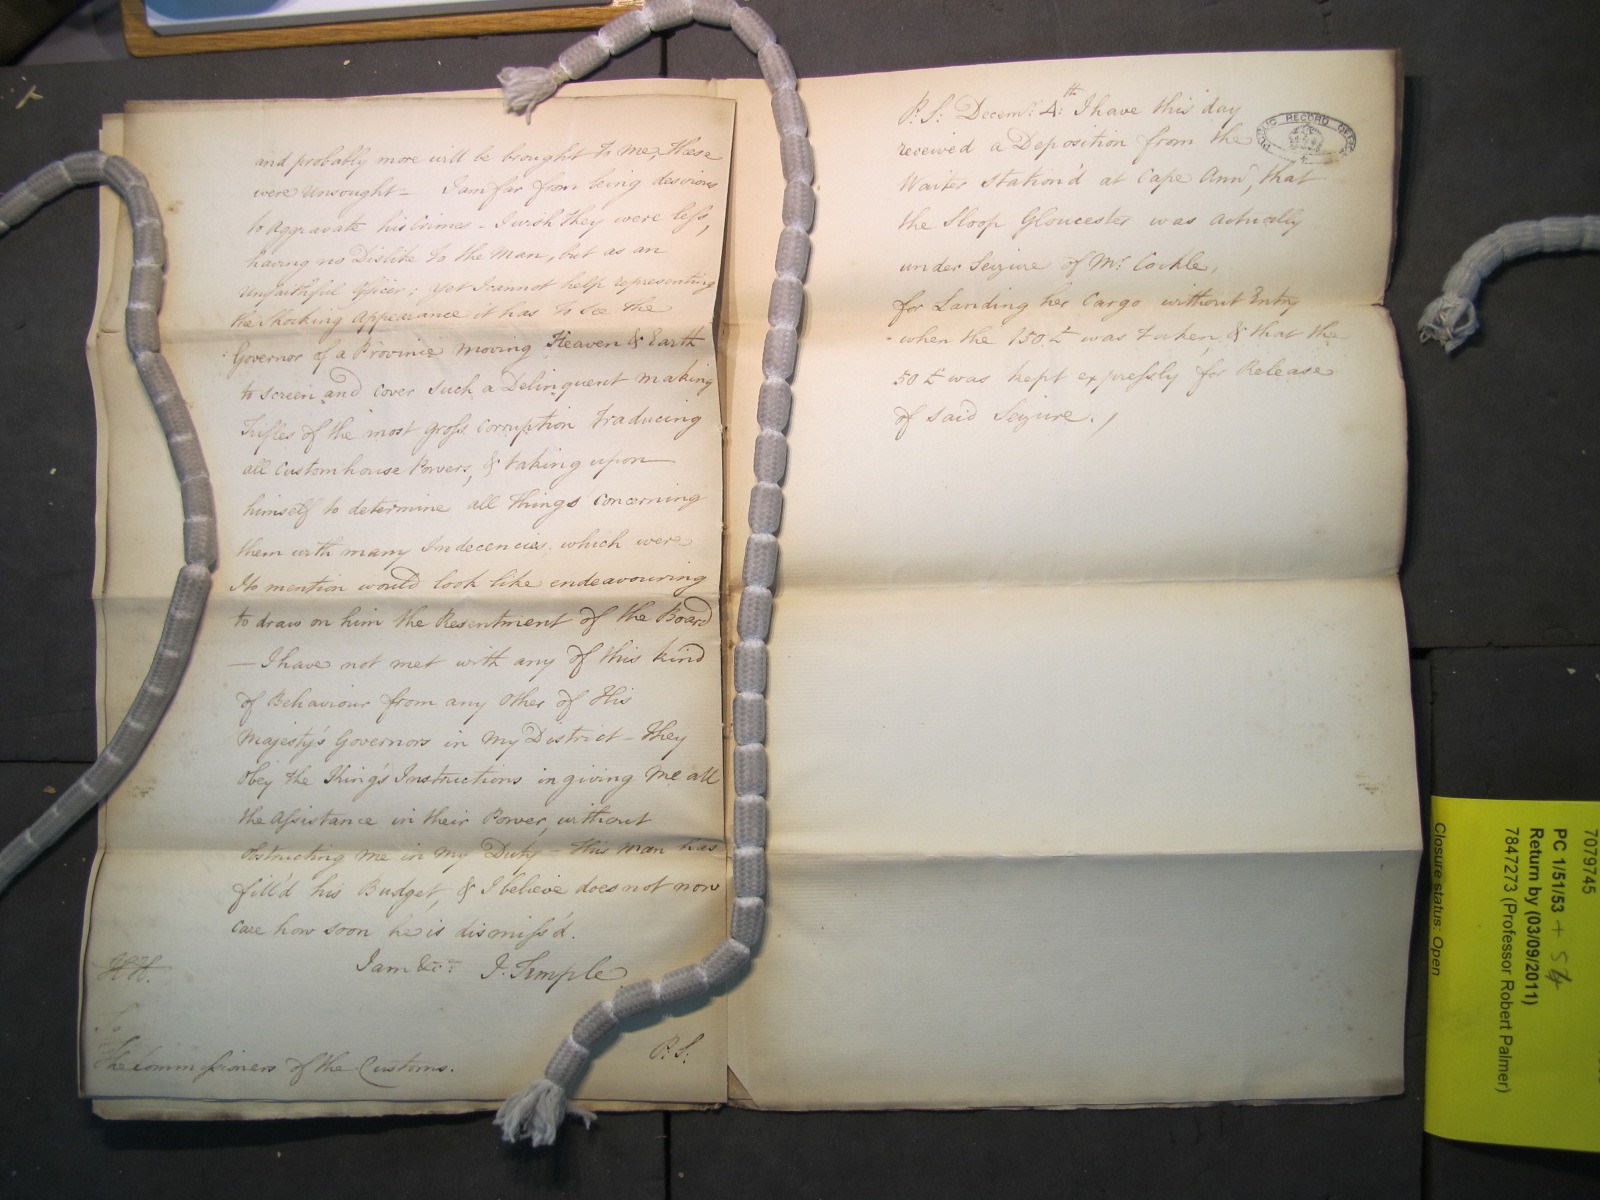 and probably more will be brought to me, these
were Unsought – I am far from being desirous
to aggravate his Crimes – I wish they were less,
having no Dislike to the Man, but as an
Unfaithful Officer; Yet I cannot help representing
the Shocking Appearance it has to see the
Governor of a Province moving Heaven & Earth
to screen and cover such a Delinquent making
Trifles of the most gross corruption traducing
all Customhouse Powers, & taking upon
himself to determine all things concerning
them with many Indecencies, which were
I to mention would look like endeavouring
to draw on him the Resentment of the Board
— I have not met with any of this kind
of Behaviour from any Other of His
Majesty's Governors in my District – They
Obey the King's Instructions in giving me all
the Assistance in their Power, without
obstructing me in my Duty – this man has
fill'd his Budget, & I believe does not now
care how soon he is dismiss'd.
I am &c.a J. Temple
HH.
To
The Commissioners of the Customs.
P: S:
P: S: Decem.r 4:th I have this day
received a Deposition from the
Waiter station'd at Cape Ann, that
the Sloop Gloucester was actually
under Seizure of Mr. Cockle,
for Landing her Cargo without Entry
when the 150 £ was taken, & that the
50 £ was kept expressly for Release
of said Seizure.
PUBLIC RECORD OFFICE
7079745
PC 1/51/53 + 54
Return by (03/09/2011)
7847273 (Professor Robert Palmer)
Closure status: Open